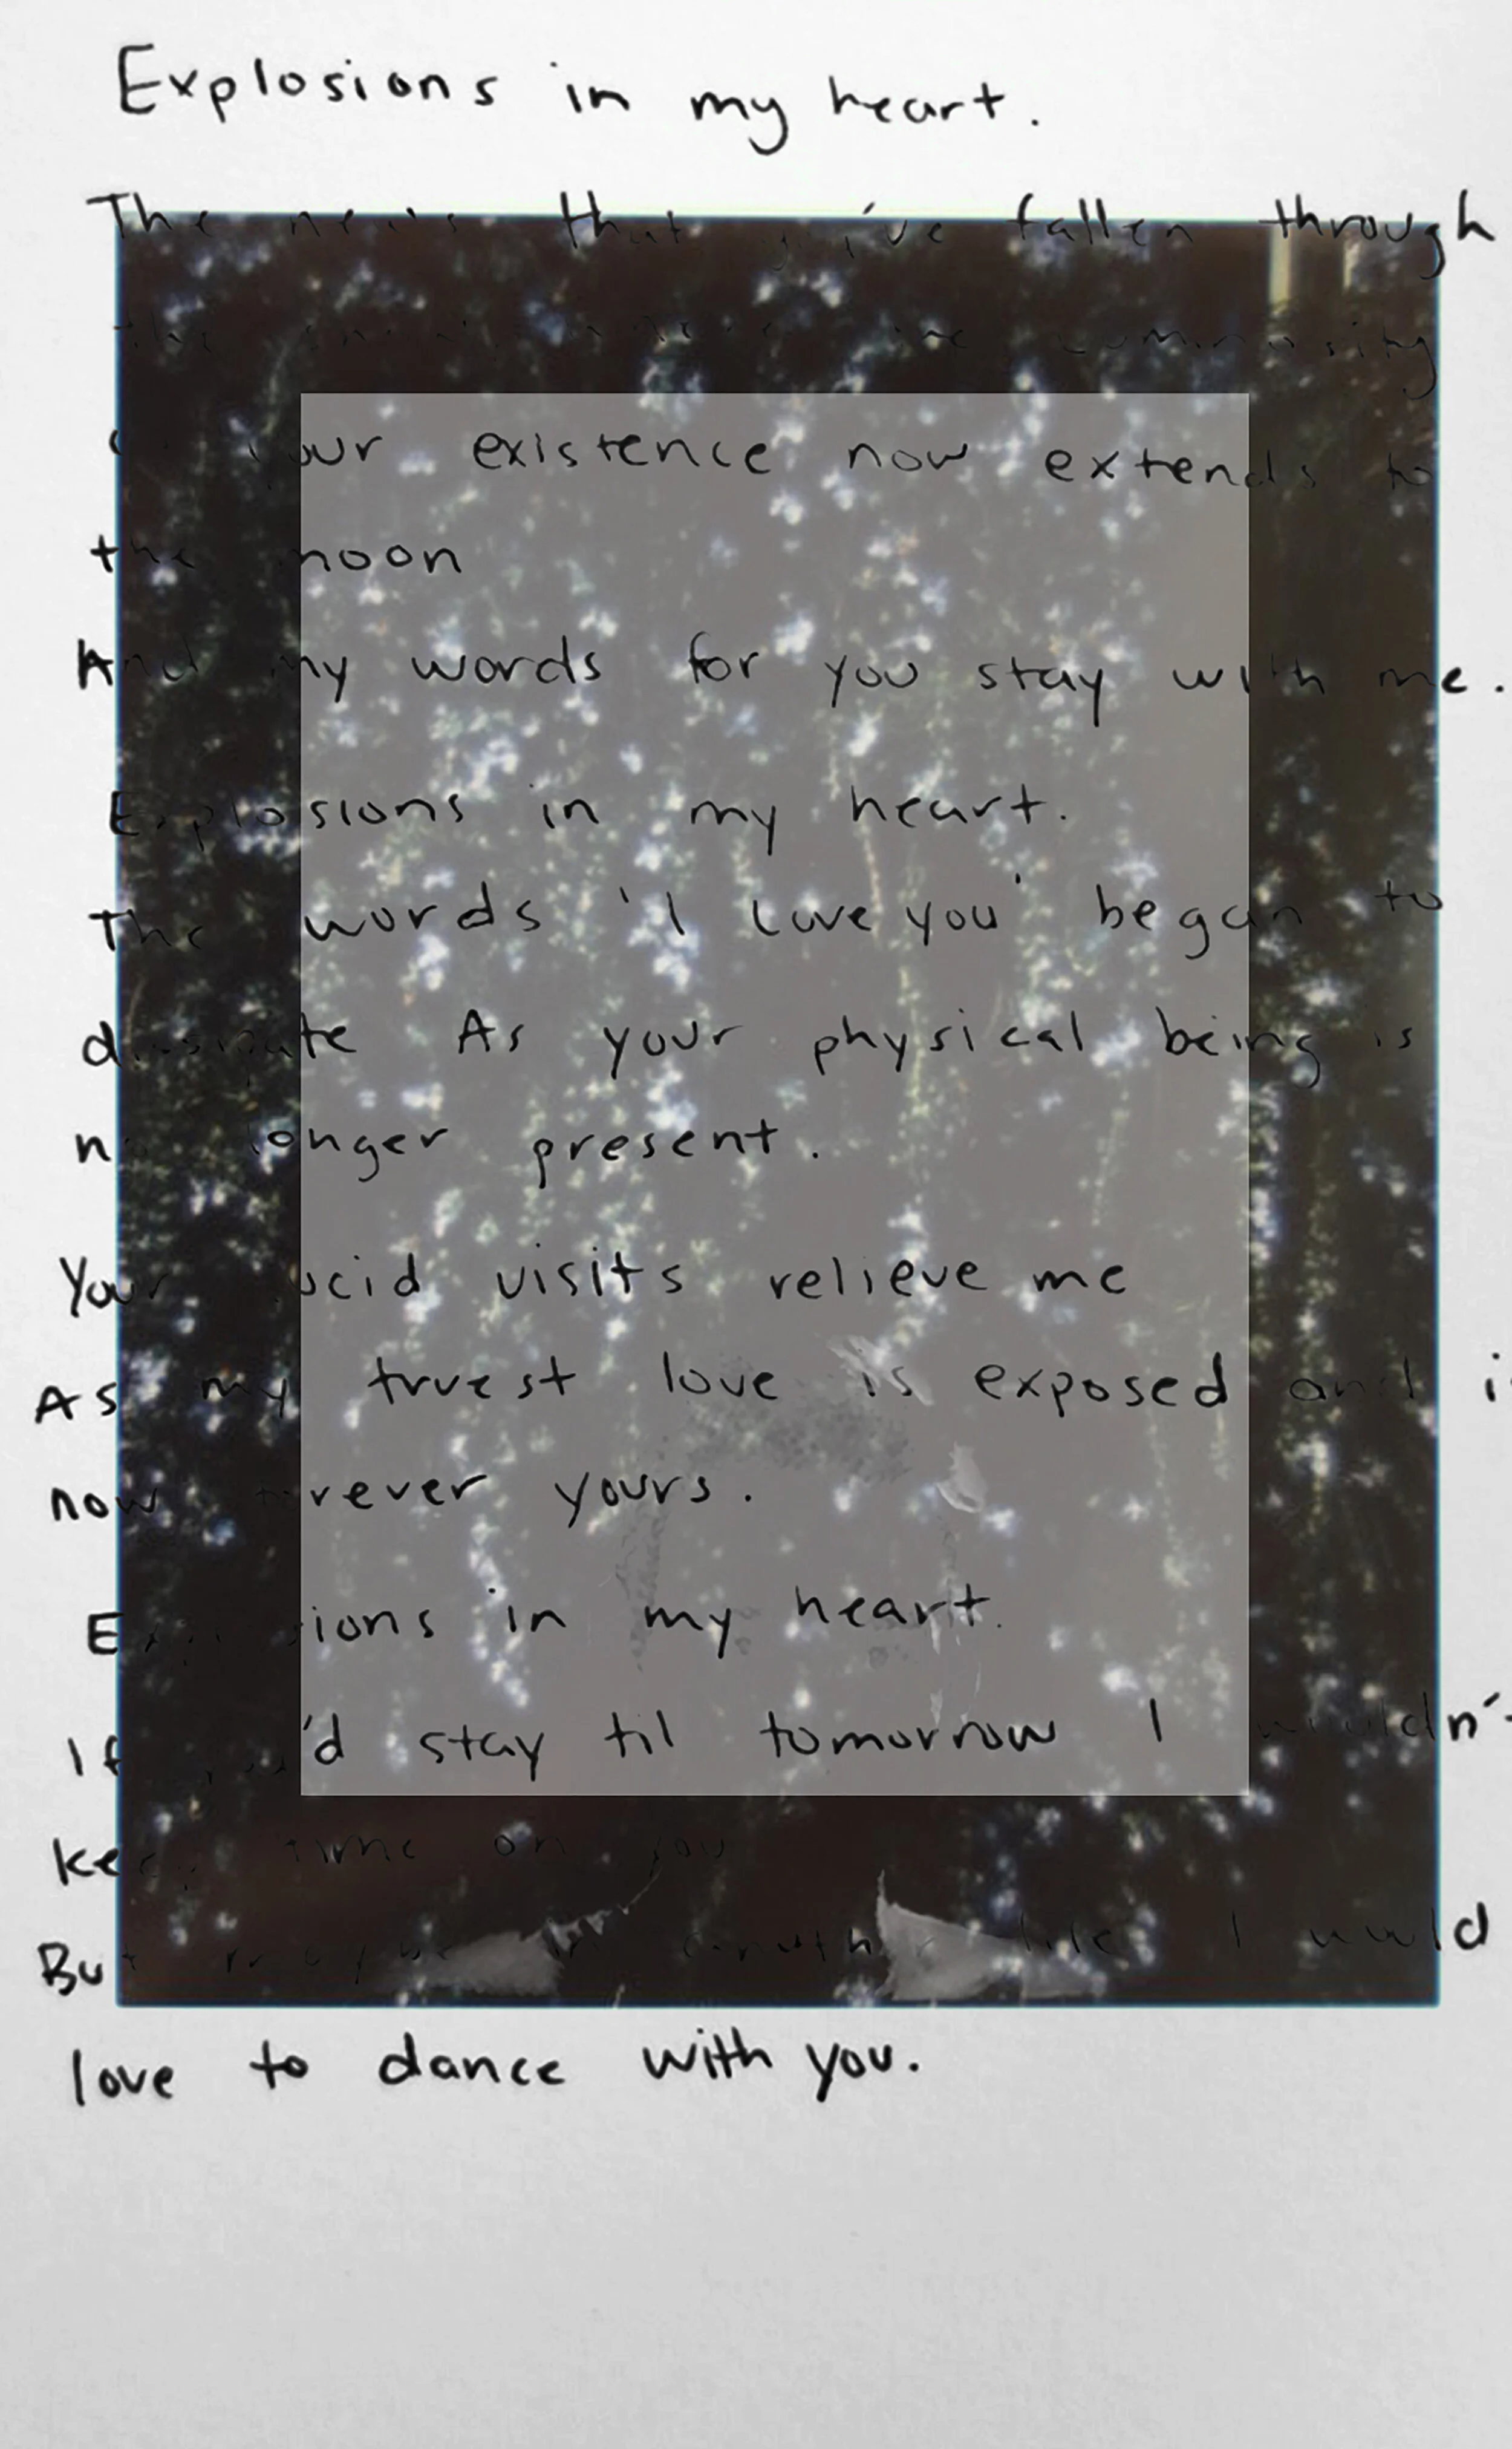 Explosions in my heart.
The news that you've fallen through
the
your existence now extends to
the moon
And my words for you stay with me.
Explosions in my heart.
The words 'I love you' began to
dissipate As your physical being is
no longer present.
Your lucid visits relieve me
As my truest love is exposed and is
now forever yours.
Explosions in my heart.
If you'd stay til tomorrow I wouldn't
keep time on you
But maybe in another life I would
love to dance with you.